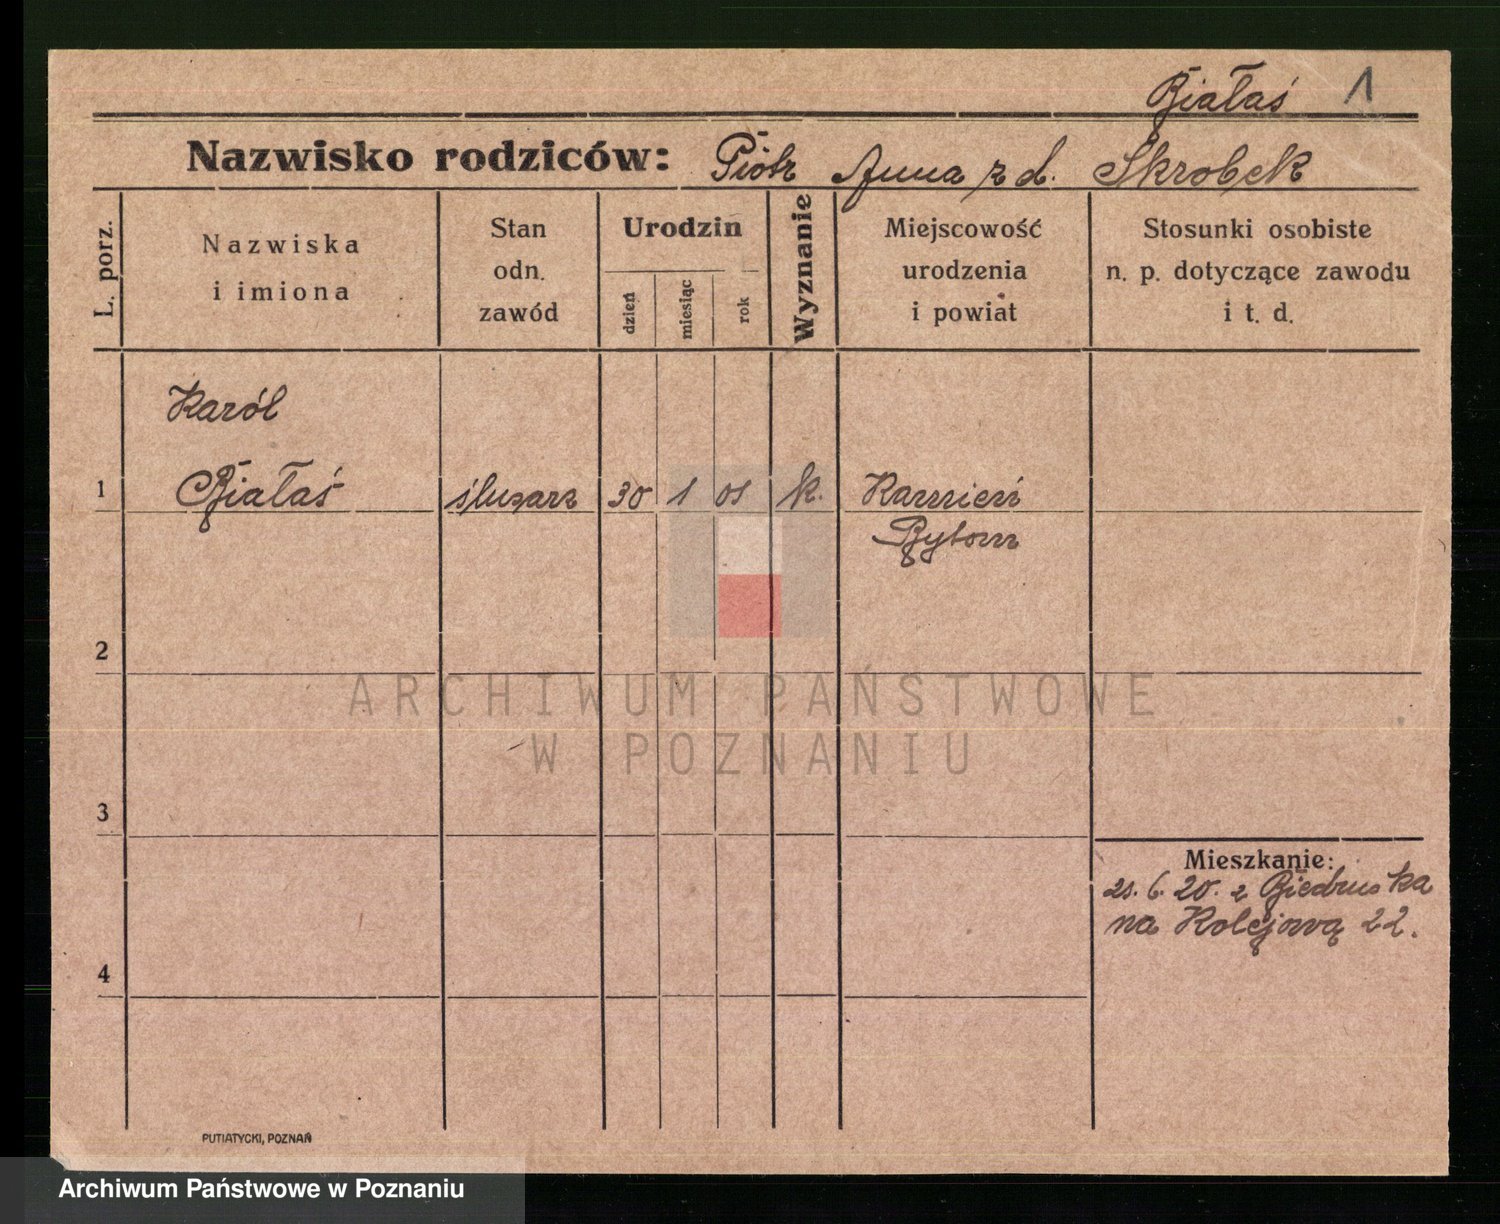 Białaś 1
Nazwisko rodziców: Piotr Anna z d. Skrobek
L. porz.
Nazwiska
i imiona
Stan
odn.
zawód
Urodzin
dzień
miesiąc
rok
Wyznanie
Miejscowość
urodzenia
i powiat
Stosunki osobiste
n. p. dotyczące zawodu
i t. d.
Karól
1 Białaś ślusarz 30 1 01 k. Kamień
Bytom
2
ARCHIWUM PAŃSTWOWE
W POZNANIU
3
Mieszkanie:
21. 6. 20. z Biedruska
na Kolejową 22.
4
PUTIATYCKI, POZNAŃ
Archiwum Państwowe w Poznaniu